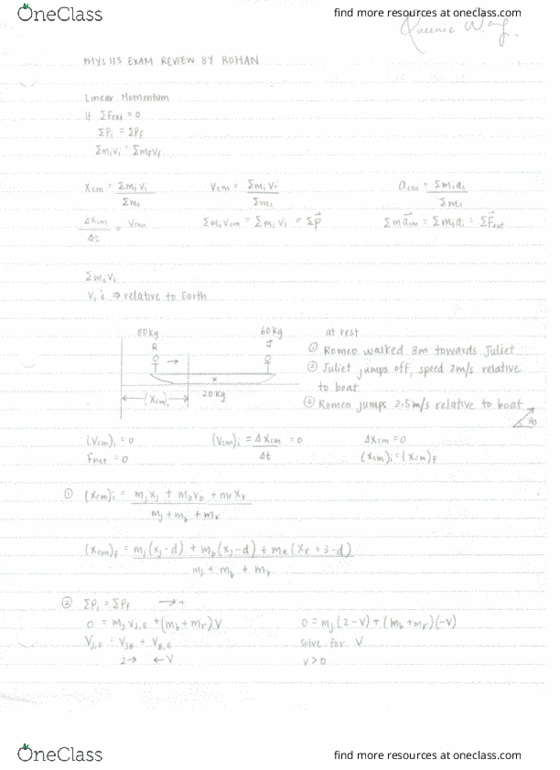 OneClass
find more resources at oneclass.com
PHYS 115 EXAM REVIEW BY ROHAN
Linear Momentum
If ΣFext = 0
ΣPi = ΣPf
ΣmiVi = ΣmfVf
Xcm = ΣmiVi / Σmi
Vcm = ΣmiVi / Σmi
acm = Σmiai / Σmi
ΔXcm / Δt = Vcm
ΣmiVcm = ΣmiVi = Σp⃗
Σma⃗cm = Σmiai = ΣF⃗ext
ΣmiVi
Vi's ⇒ relative to Earth
60kg
J
R
→
x
20kg
(Xcm)i
at rest
① Romeo walked 3m towards Juliet
② Juliet jumps off, speed 2m/s relative
to boat.
③ Romeo jumps 2.5m/s relative to boat
(Vcm)i = 0
(Vcm)i = ΔXcm / Δt = 0
ΔXcm = 0
Fnet = 0
(Xcm)i = (Xcm)f
① (Xcm)i = mjxj + mbxb + mrxr / mj + mb + mr
(Xcm)f = mj(xj-d) + mb(xj-d) + mR(XR+3-d) / mj + mb + mr
② ΣPi = ΣPf → +
0 = mjVJ,E + (mb + mr)V
0 = mj(2-V) + (mb + mr)(-V)
VJ,E = VJB + VB,E
Solve for V
2→ ←V
V>0
OneClass
find more resources at oneclass.com